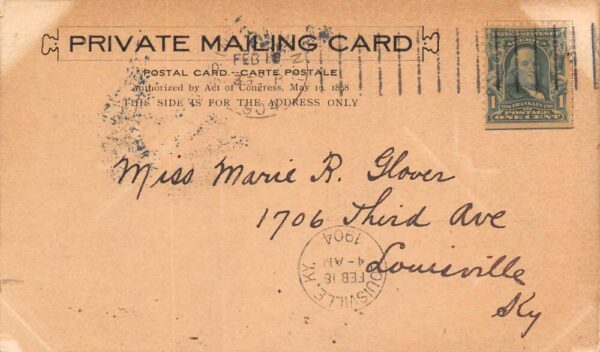 PRIVATE MAILING CARD
FEB 18
POSTAL CARD - CARTE POSTALE
Authorized by Act of Congress, May 19, 1898
THIS SIDE IS FOR THE ADDRESS ONLY
UNITED STATES
FRANKLIN
POSTAGE
1 ONE CENT 1
Miss Marie R. Glover
1706 Third Ave
Louisville
Ky
LOUISVILLE, KY.
FEB 18
4-AM
1904